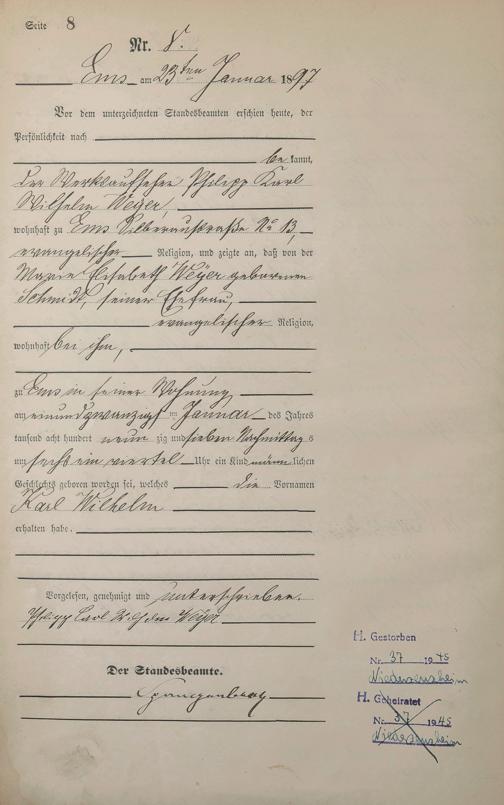 Seite 8
Nr. 8.
Ems am 23ten Januar 1897
Vor dem unterzeichneten Standesbeamten erschien heute, der
Persönlichkeit nach
be kannt,
der Werksaufseher Philipp Karl
Wilhelm Weyer,
wohnhaft zu Ems Silberaustraße No 13,
evangelischer Religion, und zeigte an, daß von der
Marie Elisabeth Weyer geborenen
Schmidt, seiner Ehefrau,
evangelischer Religion,
wohnhaft bei ihm,
zu Ems in seiner Wohnung
am einundzwanzigsten Januar des Jahres
tausend acht hundert neun zig und sieben Nachmittag s
um sechs ein viertel Uhr ein Kind männlichen
Geschlechts geboren worden sei, welches die Vornamen
Karl Wilhelm
erhalten habe.
Vorgelesen, genehmigt und unterschrieben.
Philipp Carl Wilhelm Weyer
Der Standesbeamte.
H. Gestorben
Nr. 37 1945
H. Geheiratet
Nr. 37 1945